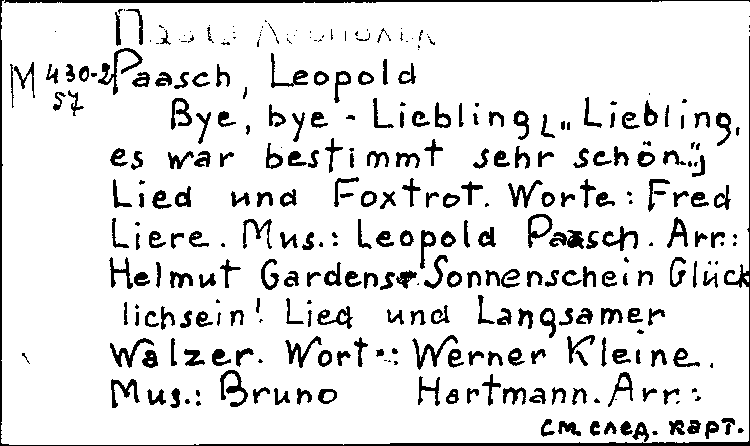 Пааш Леопольд
М 430-2
57
Paasch, Leopold
Bye, bye - Liebling [„Liebling,
es war bestimmt sehr schön..."]
Lied und Foxtrot. Worte: Fred
Liere. Mus.: Leopold Paasch. Arr.:
Helmut Gardens. Sonnenschein Glück
lichsein! Lied und Langsamer
Walzer. Wort.: Werner Kleine.
Mus.: Bruno Hartmann. Arr.:
См. след. карт.